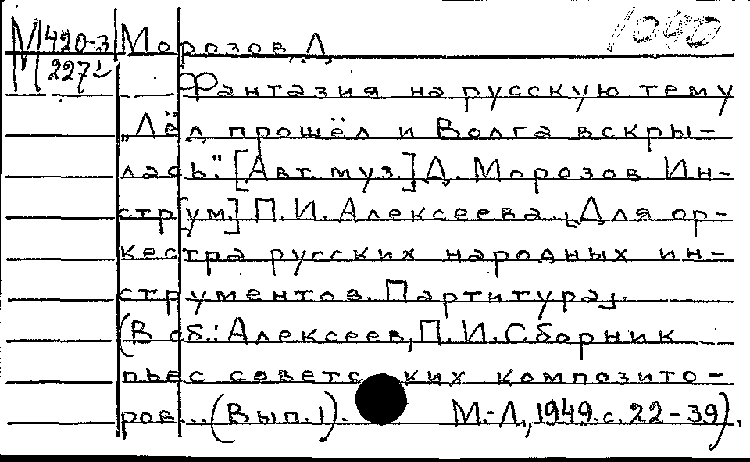 1090
М 420-3 Морозов, Д.
М 227 Фантазия на русскую тему
„Лёд прошёл и Волга вскры-
лась". [Авт. муз.] Д. Морозов. Ин-
стр[ум.] П. И. Алексеева. [Для ор-
кестра русских народных ин-
струментов. Партитура].
(В сб.: Алексеев, П. И. Сборник
пьес советских композито-
ров... (Вып. 1). М.-Л., 1949. с. 22-39).